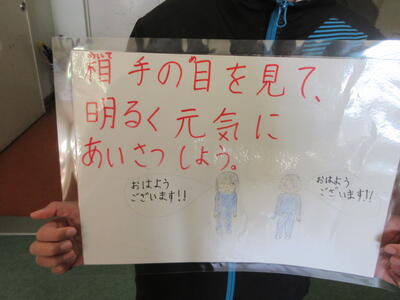 相手の目を見て、
明るく元気に
あいさつしよう。
おはよう
ございます!!
おはよう
ございます!!